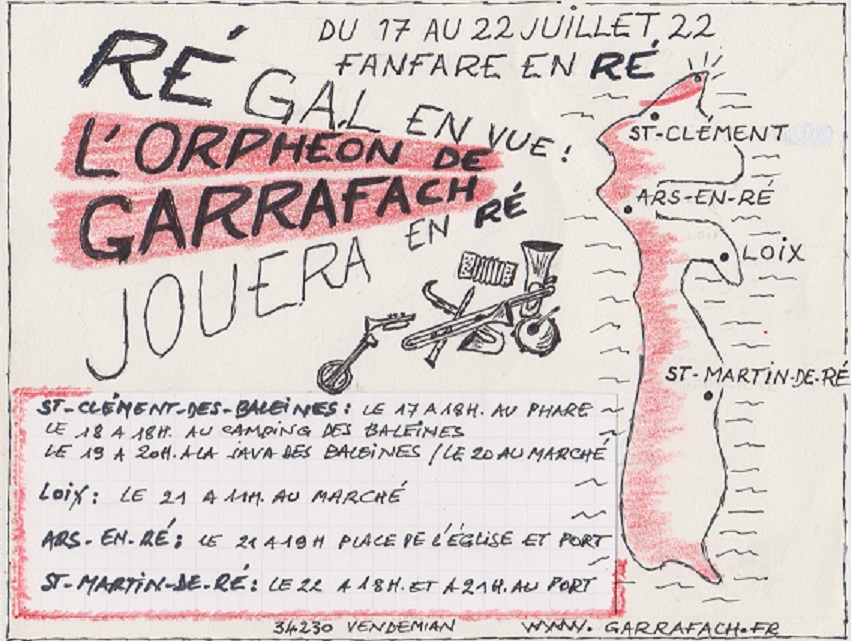 DU 17 AU 22 JUILLET 22
FANFARE EN RÉ
RÉGAL EN VUE!
L'ORPHÉON DE
GARRAFACH
JOUERA EN RÉ
ST-CLÉMENT
ARS-EN-RÉ
LOIX
ST-MARTIN-DE-RÉ
ST-CLÉMENT-DES-BALEINES: LE 17 A 18H. AU PHARE
LE 18 A 18H. AU CAMPING DES BALEINES
LE 19 A 20H. A LA JAVA DES BALEINES / LE 20 AU MARCHÉ
LOIX: LE 21 A 11H. AU MARCHÉ
ARS-EN-RÉ: LE 21 A 19H PLACE DE L'ÉGLISE ET PORT
ST-MARTIN-DE-RÉ: LE 22 A 18H. ET A 21H. AU PORT
34230 VENDEMIAN WWW.GARRAFACH.FR